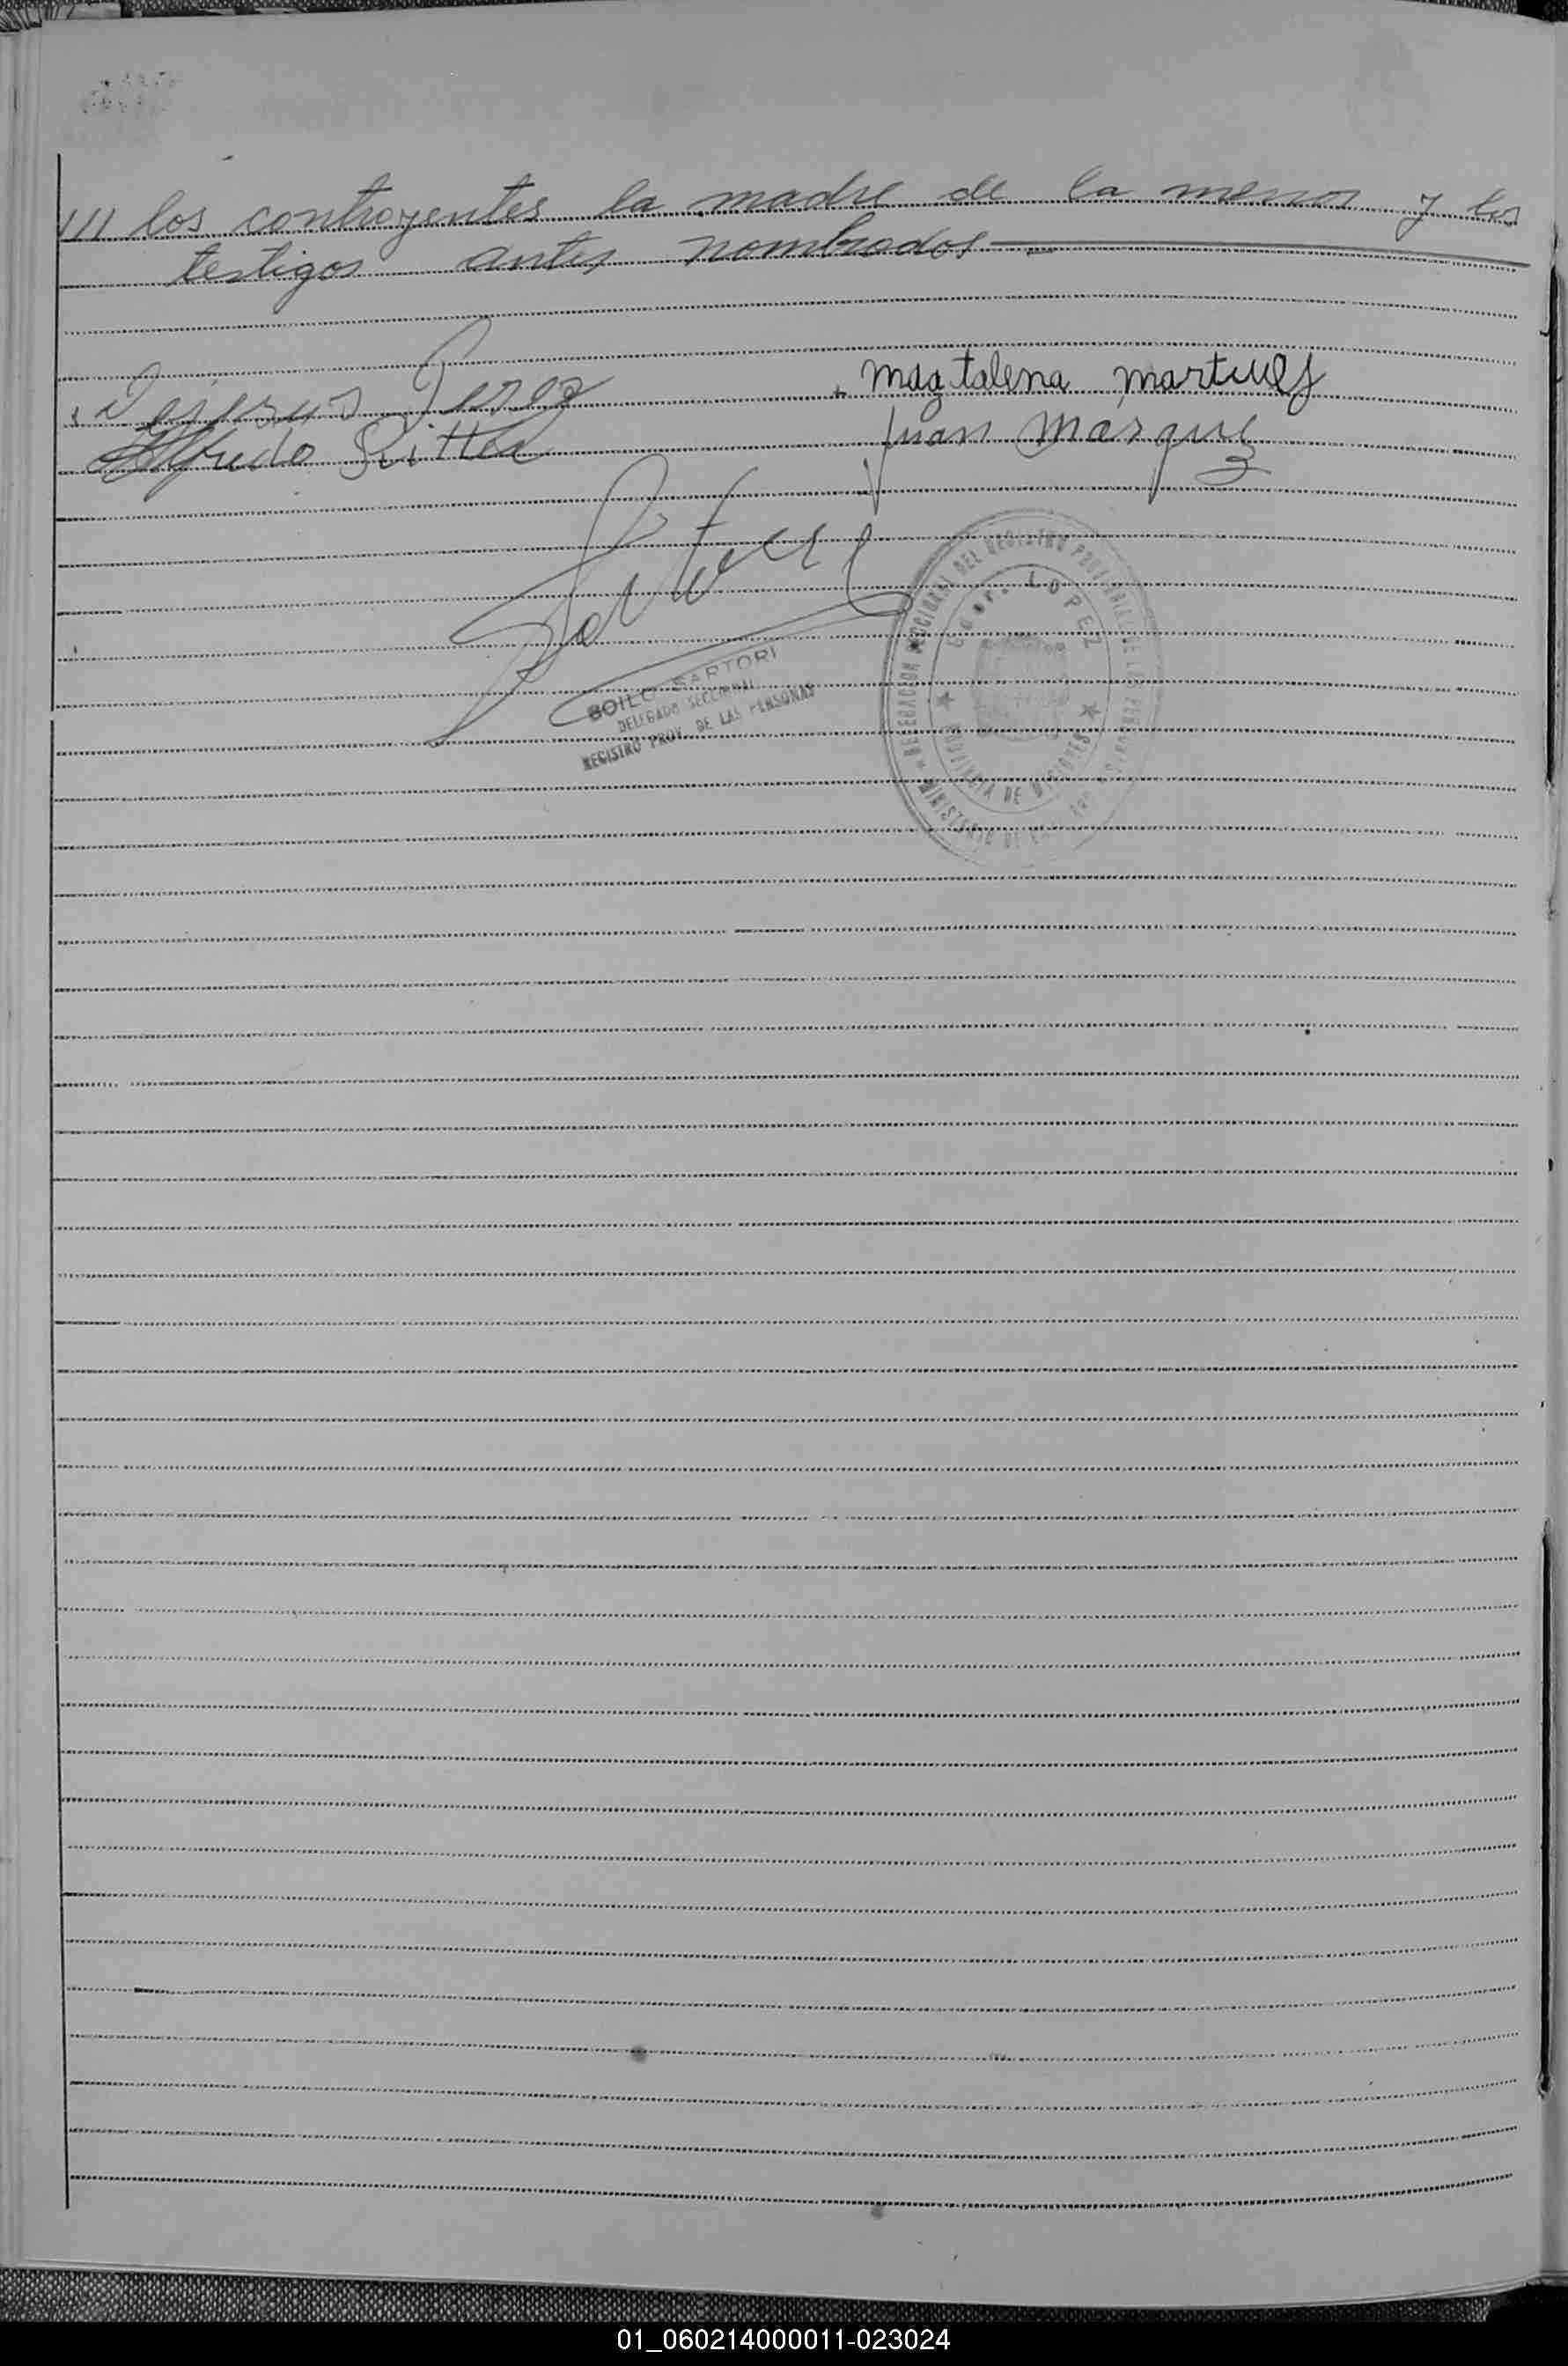 /// los contrayentes la madre de la menor y los
testigos antes nombrados
Perez
magtalena martines
Alfredo Ritter
Juan Marque
z
SOILO SARTORI
DELEGADO SECCIONAL
REGISTRO PROV. DE LAS PERSONAS
DELEGACION SECCIONAL DEL REGISTRO PROVINCIAL DE LAS PERSONAS
Cder. LOPEZ
PROVINCIA DE MISIONES
MINISTERIO DE
01_060214000011-023024